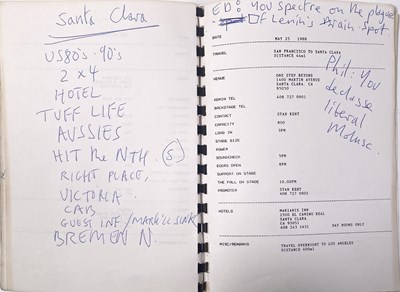 Santa Clara
US80's-90's
2 x 4
HOTEL
TUFF LIFE
AUSSIES
HIT the NTH (S)
RIGHT PLACE,
VICTORIA
CAB
GUEST INF/MARK'LL SINK
BREMEN N.
ED: You spectre on the plague
Of Lenin's Brain Spot
Phil: You
declasse
liberal
Molusc.
DATE MAY 25 1988
TRAVEL SAN FRANCISCO TO SANTA CLARA
DISTANCE 46ml
VENUE ONE STEP BEYOND
1400 MARTIN AVENUE
SANTA CLARA, CA
95050
ADMIN TEL 408 727 0901
BACKSTAGE TEL
CONTACT STAN KENT
CAPACITY 800
LOAD IN 3PM
STAGE SIZE
POWER
SOUNDCHECK 5PM
DOORS OPEN 8PM
SUPPORT ON STAGE
THE FALL ON STAGE 10.00PM
PROMOTER STAN KENT
408 727 0901
HOTELS MARIANIS INN
2500 EL CAMINO REAL
SANTA CLARA
CA 95051
408 243 1431 DAY ROOMS ONLY
MISC/REMARKS TRAVEL OVERNIGHT TO LOS ANGELES
DISTANCE 400ml